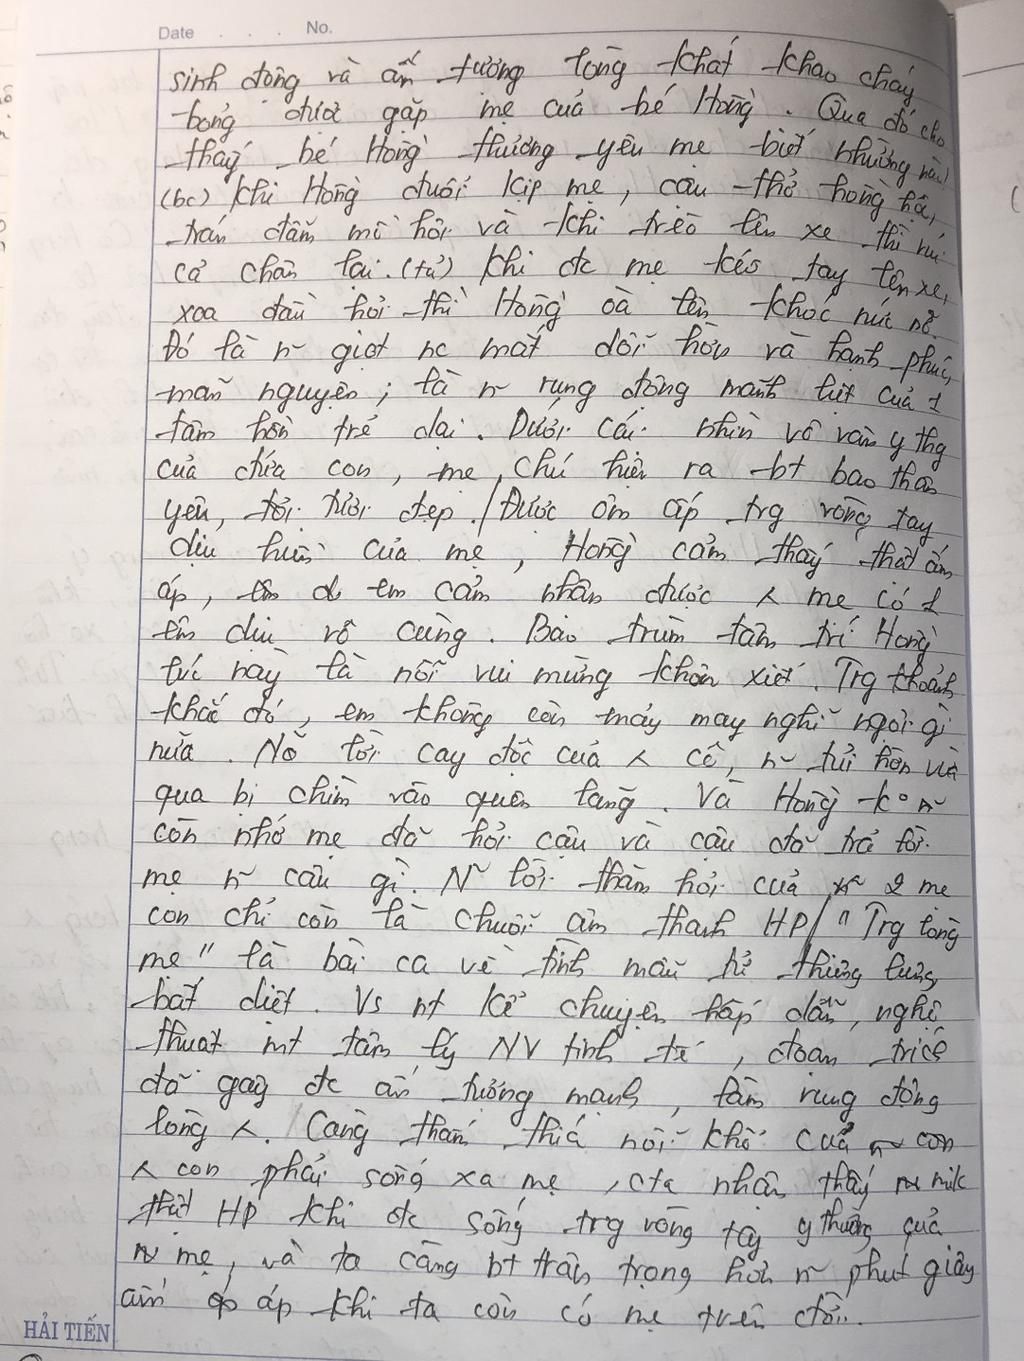 Date . . . No.
sinh động và ấn tượng lòng khát khao cháy
bỏng được gặp mẹ của bé Hồng. Qua đó cho
thấy bé Hồng thương yêu mẹ biết nhường nào!
(bc) Khi Hồng đuổi kịp mẹ, cậu thở hồng hộc,
trán đẫm mồ hôi và khi trèo lên xe thì ríu
cả chân lại. (tủ) Khi đc mẹ kéo tay lên xe,
xoa đầu hỏi thì Hồng oà lên khóc nức nở.
Đó là n~ giọt nc mắt dỗi hờn và hạnh phúc,
mãn nguyện; là n~ rung động mãnh liệt của 1
tâm hồn trẻ dại. Dưới cái nhìn vô vàn y thg
của đứa con, mẹ chú hiện ra bt bao thân
yêu, tươi đẹp. / Được ôm ấp trg vòng tay
dịu hiền của mẹ, Hồng cảm thấy thật ấm
áp, em cảm nhận được mẹ có 1
êm dịu vô cùng. Bao trùm tâm trí Hồng
lúc này là nỗi vui mừng khôn xiết. Trg khoảnh
khắc đó, em không còn mảy may nghĩ ngợi gì
nữa. lời cay độc của cô, n~ tủi hờn vừa
qua bị chìm vào quên lãng. Và Hồng k°
còn nhớ mẹ đã hỏi cậu và cậu đã trả lời
mẹ n~ câu gì. N~ lời thăm hỏi của 2 mẹ
con chỉ còn là chuỗi âm thanh HP / "Trg lòng
mẹ" là bài ca về tình mẫu tử thiêng liêng,
bất diệt. Vs nt kể chuyện hấp dẫn, nghệ
thuật mt tâm lý NV tinh tế, đoạn trích
đã gây đc ấn tượng mạnh, làm rung động
lòng. Càng thấm thía nỗi khổ của con
con phải sống xa mẹ, cta nhận thấy
thật HP khi đc sống trg vòng tay y thương của
mẹ, và ta càng bt trân trọng hơn n~ phút giây
ấm áp khi ta còn có mẹ trên đời.
HẢI TIẾN